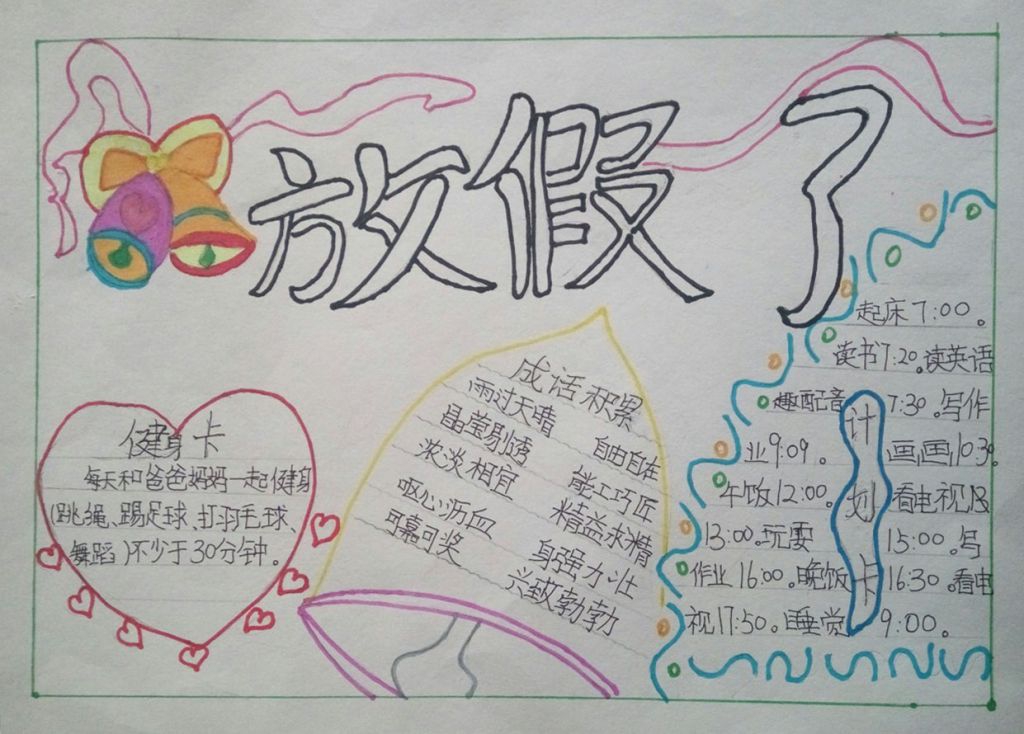 放假了
健身卡
每天和爸爸妈妈一起健身
(跳绳、踢足球、打羽毛球、
舞蹈)不少于30分钟。
成话积累
雨过天晴 自由自在
晶莹剔透 能工巧匠
浓淡相宜 精益求精
呕心沥血 身强力壮
可嘉可奖 兴致勃勃
计划卡
起床7:00。
读书7:20。读英语
趣配音 7:30。写作
业9:09。画画10:30。
午饭12:00。看电视
13:00。玩耍 15:00。写
作业16:00。晚饭16:30。看电
视17:50。睡觉 9:00。